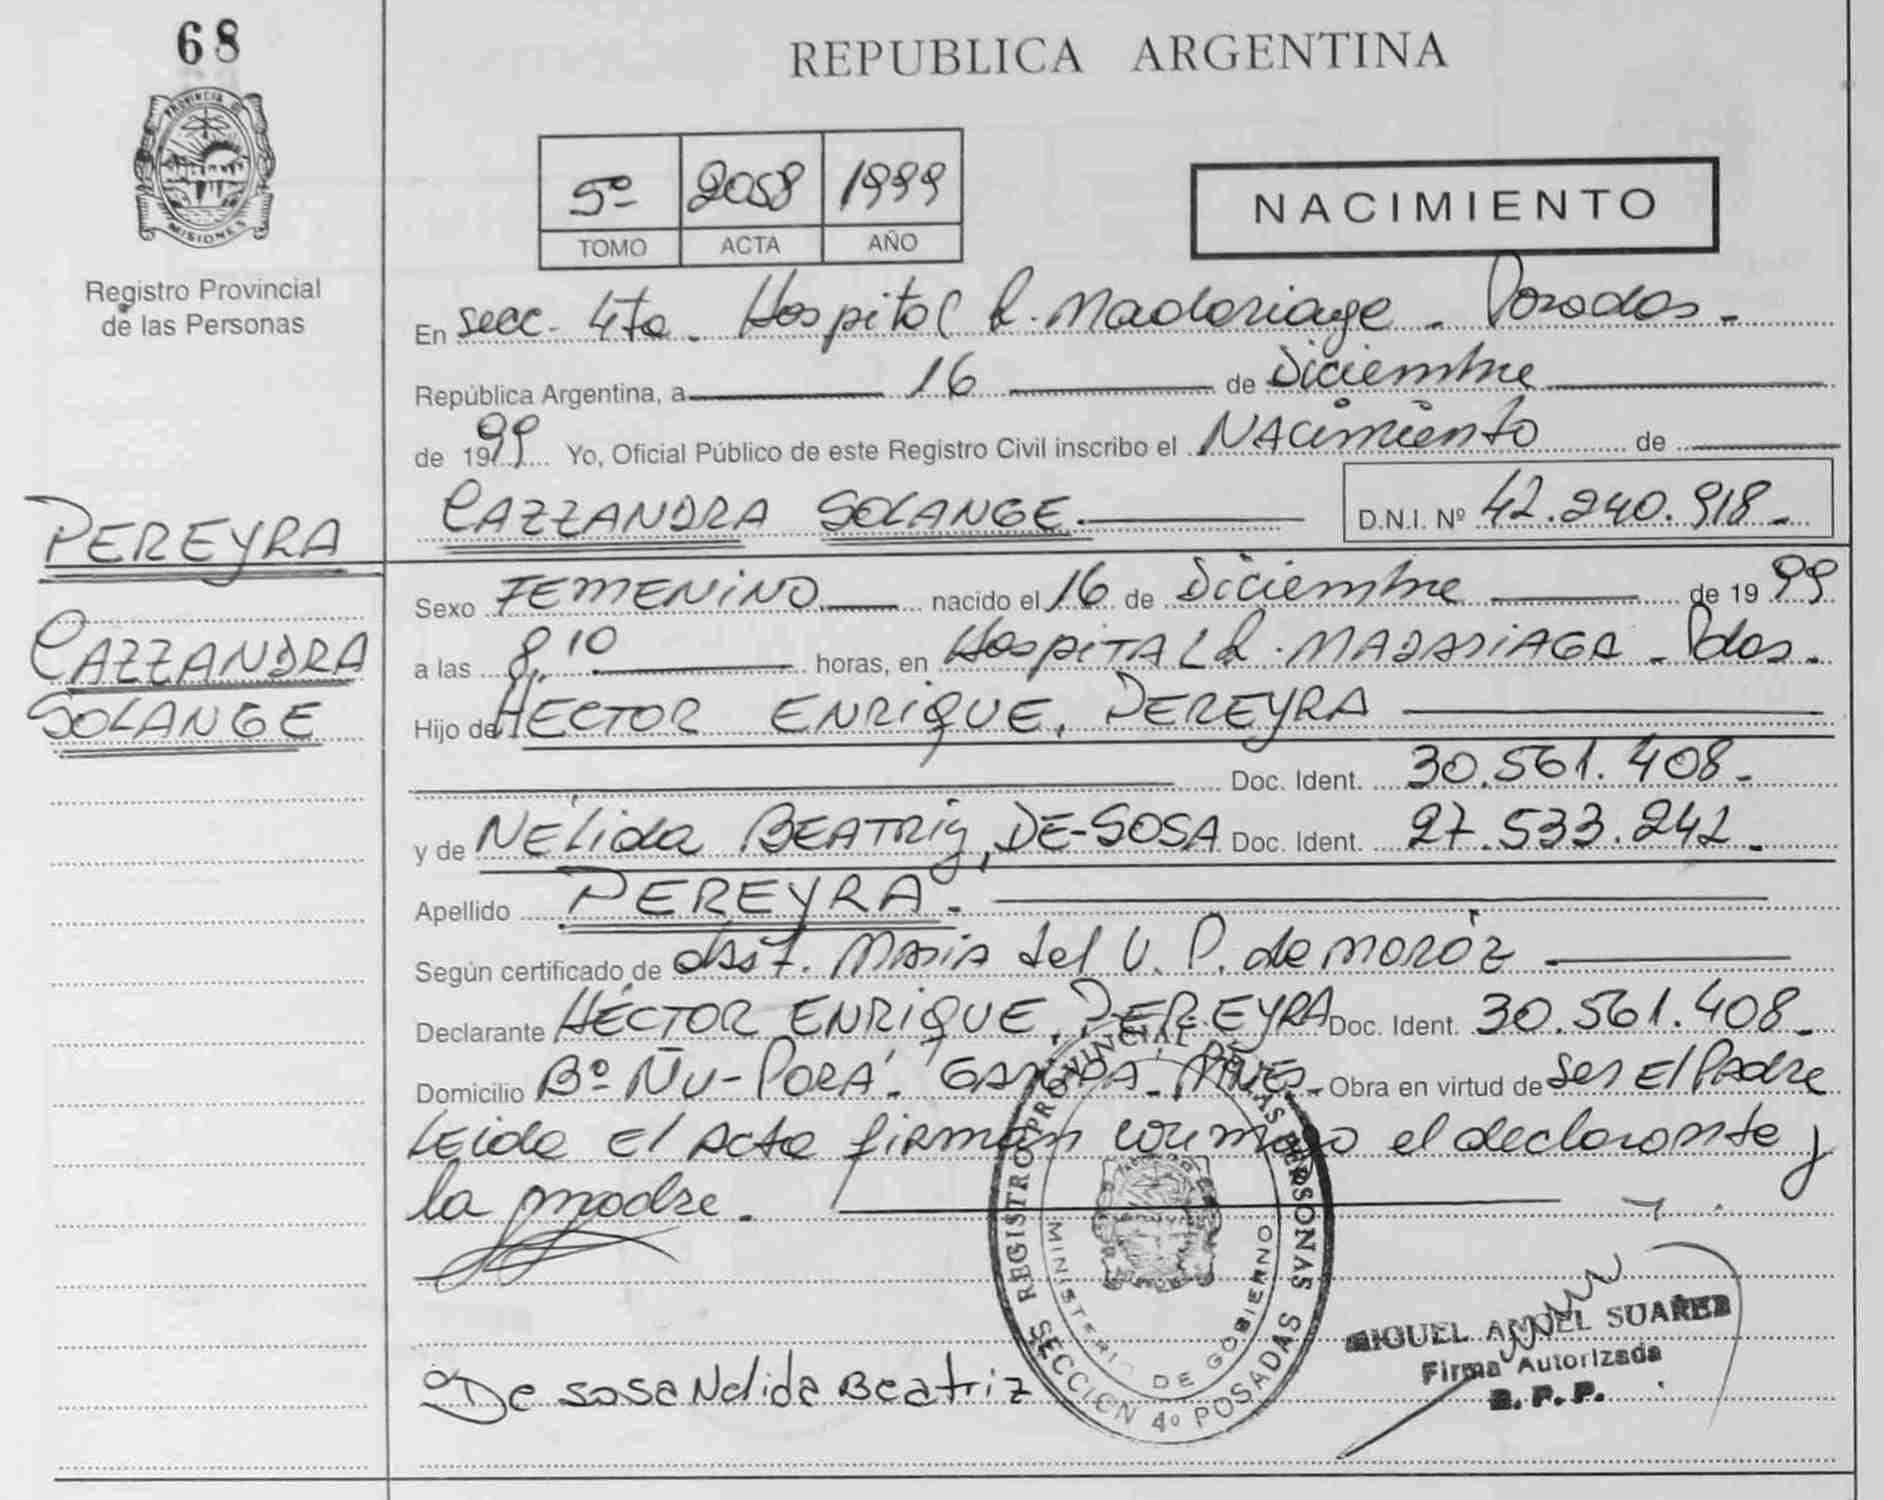 68
REPUBLICA ARGENTINA
PROVINCIA DE
MISIONES
Registro Provincial
de las Personas
5º 2058 1999
TOMO ACTA AÑO
NACIMIENTO
En secc. 4ta. Hospital R. Madariaga - Posadas -
República Argentina, a 16 de Diciembre
de 1999 Yo, Oficial Público de este Registro Civil inscribo el NACimiento de
CAZZANDRA SOLANGE. D.N.I. Nº 42.240.918-
PEREYRA
CAZZANDRA
SOLANGE
Sexo FEMENiNO nacido el 16 de Diciembre de 1999
a las 8,10 horas, en HospiTAL R. MADARiAGA - Pdas.
Hijo de HECTOR ENRiQUE, PEREYRA
Doc. Ident. 30.561.408-
y de NELida BEATRiz, DE-SOSA Doc. Ident. 27.533.242-
Apellido PEREYRA-
Según certificado de obst. MARIA del V. P. de moróz
Declarante HECTOR ENRiQUE, PEREYRA Doc. Ident. 30.561.408-
Domicilio Bº ÑU-PORA'- GARUPA- MNES- Obra en virtud de ser El Padre
Leida El Acta firman conmigo el declarante y
la madre.
De sosa Nelida Beatriz
REGISTRO PROVINCIAL DE LAS PERSONAS
MINISTERIO DE GOBIERNO
SECCION 4º POSADAS
MIGUEL ANGEL SUAREZ
Firma Autorizada
R. P. P.